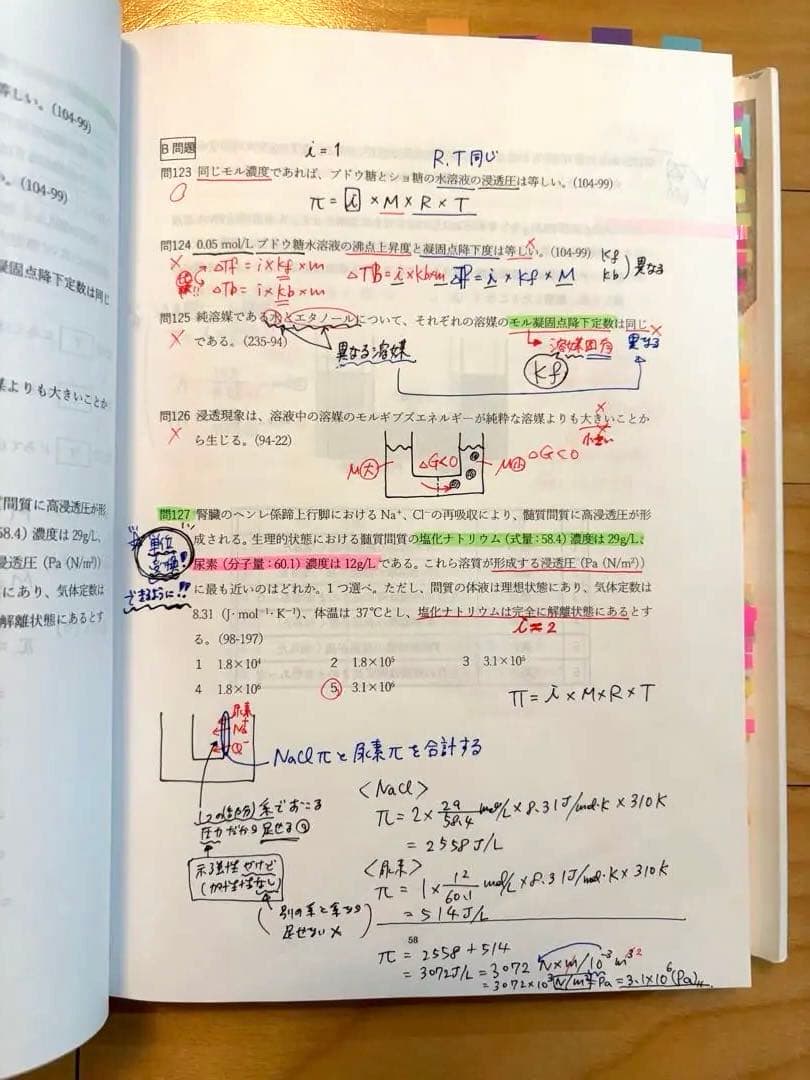 等しい。(104-99)
(104-99)
凝固点降下定数は同じ
よりも大きいことか
質間質に高浸透圧が形
58.4) 濃度は29g/L、
浸透圧 (Pa (N/m²))
にあり、気体定数は
解離状態にあるとす
B 問題
i = 1
R.T同じ
問123 同じモル濃度であれば、ブドウ糖とショ糖の水溶液の浸透圧は等しい。(104-99)
○
π = i × M × R × T
問124 0.05 mol/L ブドウ糖水溶液の沸点上昇度と凝固点降下度は等しい。(104-99)
×
×
Kf
Kb
) 異なる
ΔTf = i × kf × m
ΔTB = i × Kb × m
= i × Kf × M
ΔTb = i × kb × m
問125 純溶媒である水とエタノールについて、それぞれの溶媒のモル凝固点降下定数は同じ
×
×
である。(235-94)
異なる溶媒
溶媒固有
異なる
Kf
問126 浸透現象は、溶液中の溶媒のモルギブズエネルギーが純粋な溶媒よりも大きいことか
×
×
ら生じる。(94-22)
小さい
M大
ΔG<0
M小
ΔG<0
i
問127 腎臓のヘンレ係蹄上行脚における Na⁺、Cl⁻の再吸収により、髄質間質に高浸透圧が
形成される。生理的状態における髄質間質の塩化ナトリウム (式量:58.4) 濃度は29g/L、
尿素 (分子量:60.1) 濃度は12g/Lである。これら溶質が形成する浸透圧 (Pa (N/m²))
に最も近いのはどれか。1つ選べ。ただし、間質の体液は理想状態にあり、気体定数は
8.31 (J・mol⁻¹・K⁻¹)、体温は37℃とし、塩化ナトリウムは完全に解離状態にあるとす
る。(98-197)
i = 2
単位
変換!
できるように!!
1 1.8×10⁴ 2 1.8×10⁵ 3 3.1×10⁵
4 1.8×10⁶ 5 3.1×10⁶
π = i × M × R × T
尿素
Na⁺
Cl⁻
NaClπと尿素πを合計する
1つの(成分)系でおこる
圧力だから足せる
示強性だけど
(加成性なし)
(別の系と系なら
足せない×)
<NaCl>
π = 2 × 29/58.4 mol/L × 8.31 J/mol・K × 310K
= 2558 J/L
<尿素>
π = 1 × 12/60.1 mol/L × 8.31 J/mol・K × 310K
= 514 J/L
58
π = 2558 + 514
= 3072 J/L = 3072 N×m/10⁻³ m³ 2
= 3072×10³ N/m² Pa = 3.1×10⁶ (Pa)